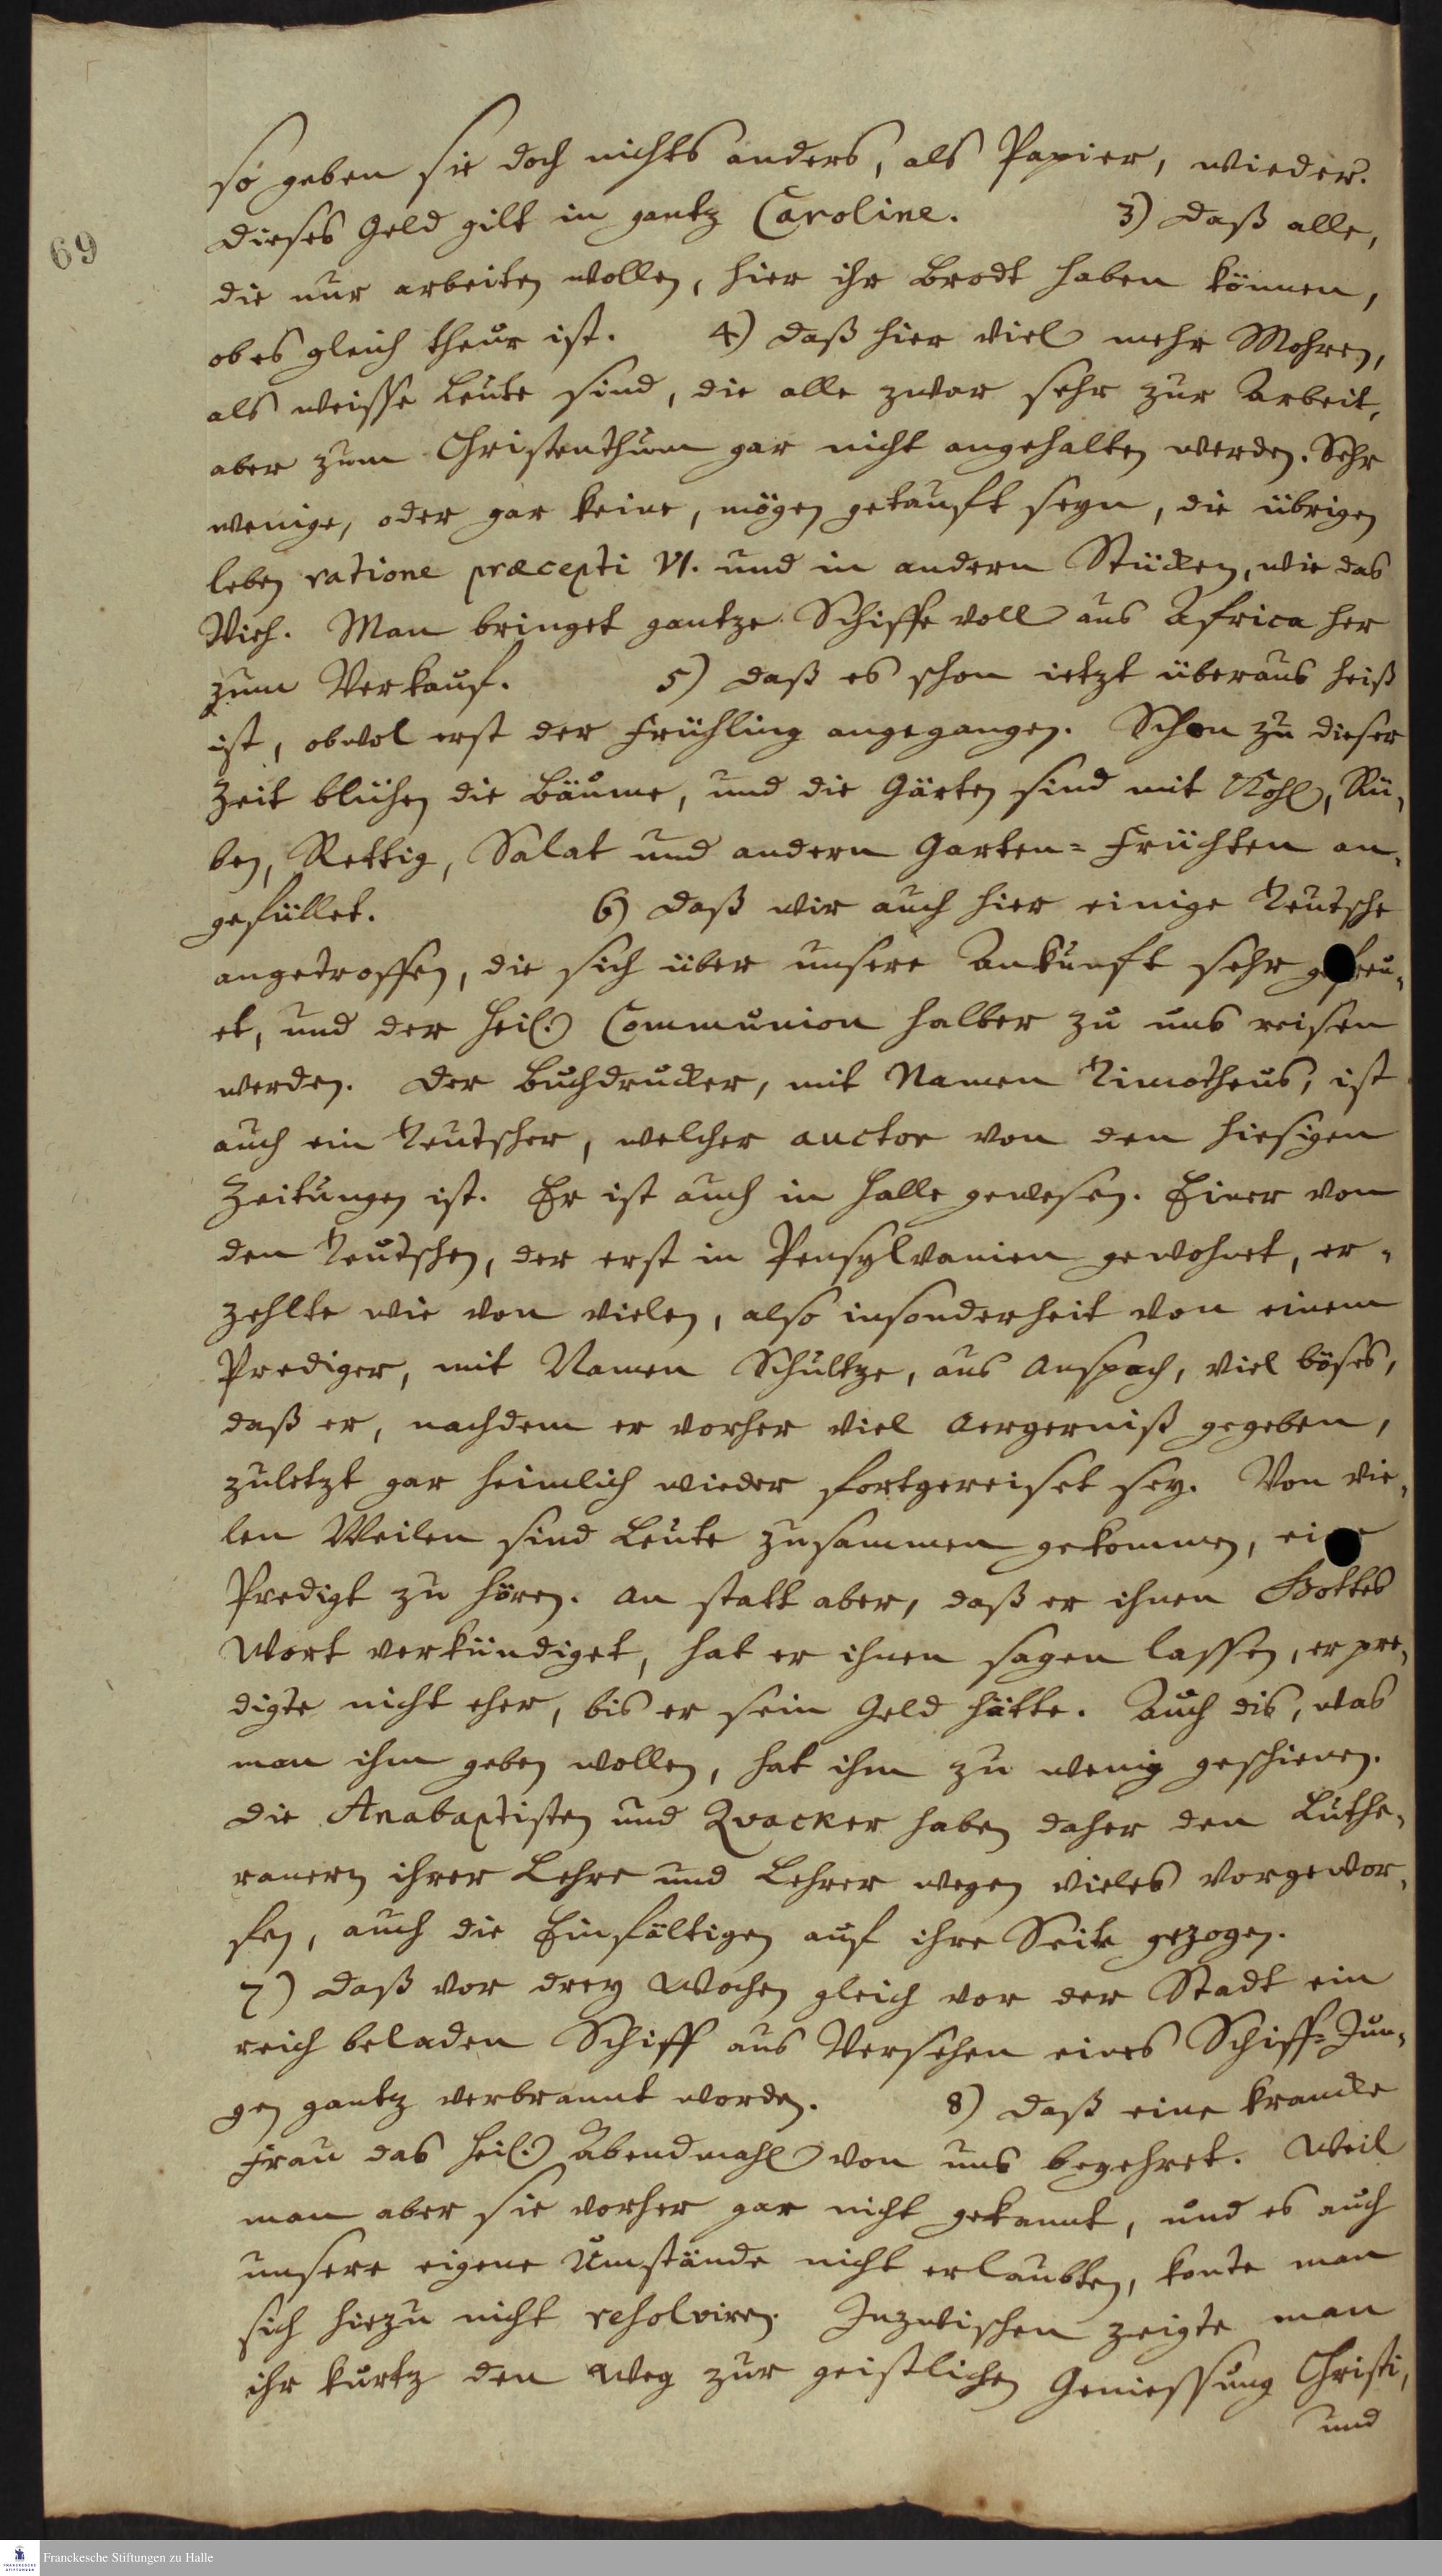 69
so geben sie doch nichts anders, als Papier, wieder.
Dieses Geld gilt in gantz Caroline. 3) Daß alle,
die nur arbeiten wollen, hier ihr Brodt haben können,
ob es gleich theur ist. 4) Daß hier viel mehr Mohren,
als weisse Leute sind, die alle zwar sehr zur Arbeit,
aber zum Christenthum gar nicht angehalten werden. Sehr
wenige, oder gar keine, mögen getauft seyn, die übrigen
leben ratione præcepti VI. und in andern Stücken, wie das
Vieh. Man bringet gantze Schiffe voll aus Africa her
zum Verkauf. 5) Daß es schon ietzt überaus heiß
ist, obwol erst der Frühling angegangen. Schon zu dieser
Zeit blühen die Bäume, und die Gärten sind mit Kohl, Rü-
ben, Rettig, Salat und andern Garten-Früchten an-
gefüllet. 6) Daß wir auch hier einige Teutsche
angetroffen, die sich über unsere Ankunft sehr gefreu-
et, und der Heil. Communion halber zu uns reisen
werden. Der Buchdrucker, mit Namen Timotheus, ist
auch ein Teutscher, welcher auctor von den hiesigen
Zeitungen ist. Er ist auch in Halle gewesen. Einer von
den Teutschen, der erst in Pensylvanien gewohnet, er-
zehlte wie von vielen, also insonderheit von einem
Prediger, mit Namen Schultze, aus Anspach, viel böses,
daß er, nachdem er vorher viel Aergerniß gegeben,
zuletzt gar heimlich wieder fortgereiset sey. Von vie-
len Meilen sind Leute zusammen gekommen, eine
Predigt zu hören. An statt aber, daß er ihnen Gottes
Wort verkündiget, hat er ihnen sagen lassen, er pre-
digte nicht eher, bis er sein Geld hätte. Auch dis, was
man ihm geben wollen, hat ihm zu wenig geschienen.
Die Anabaptisten und Qvacker haben daher den Luthe-
ranern ihrer Lehre und Lehrer wegen vieles vorgewor-
fen, auch die Einfältigen auf ihre Seite gezogen.
7) Daß vor drey Wochen gleich vor der Stadt ein
reich beladen Schiff aus Versehen eines Schiff-Jun-
gen gantz verbrannt worden. 8) Daß eine krancke
Frau das Heil. Abendmahl von uns begehret. Weil
man aber sie vorher gar nicht gekannt, und es auch
unsere eigene Umstände nicht erlaubten, konte man
sich hiezu nicht resolviren. Inzwischen zeigte man
ihr kurtz den Weg zur geistlichen Geniessung Christi,
und
Franckesche Stiftungen zu Halle